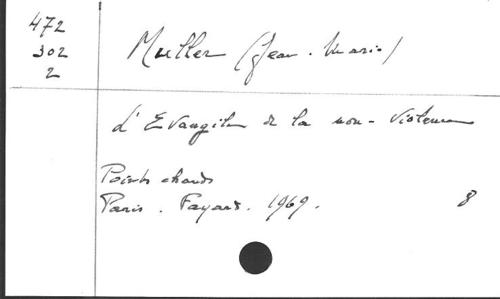 472
302
2
Muller (Jean-Marie)
L'Evangile de la non-violence
Points chauds
Paris. Fayard. 1969.
8